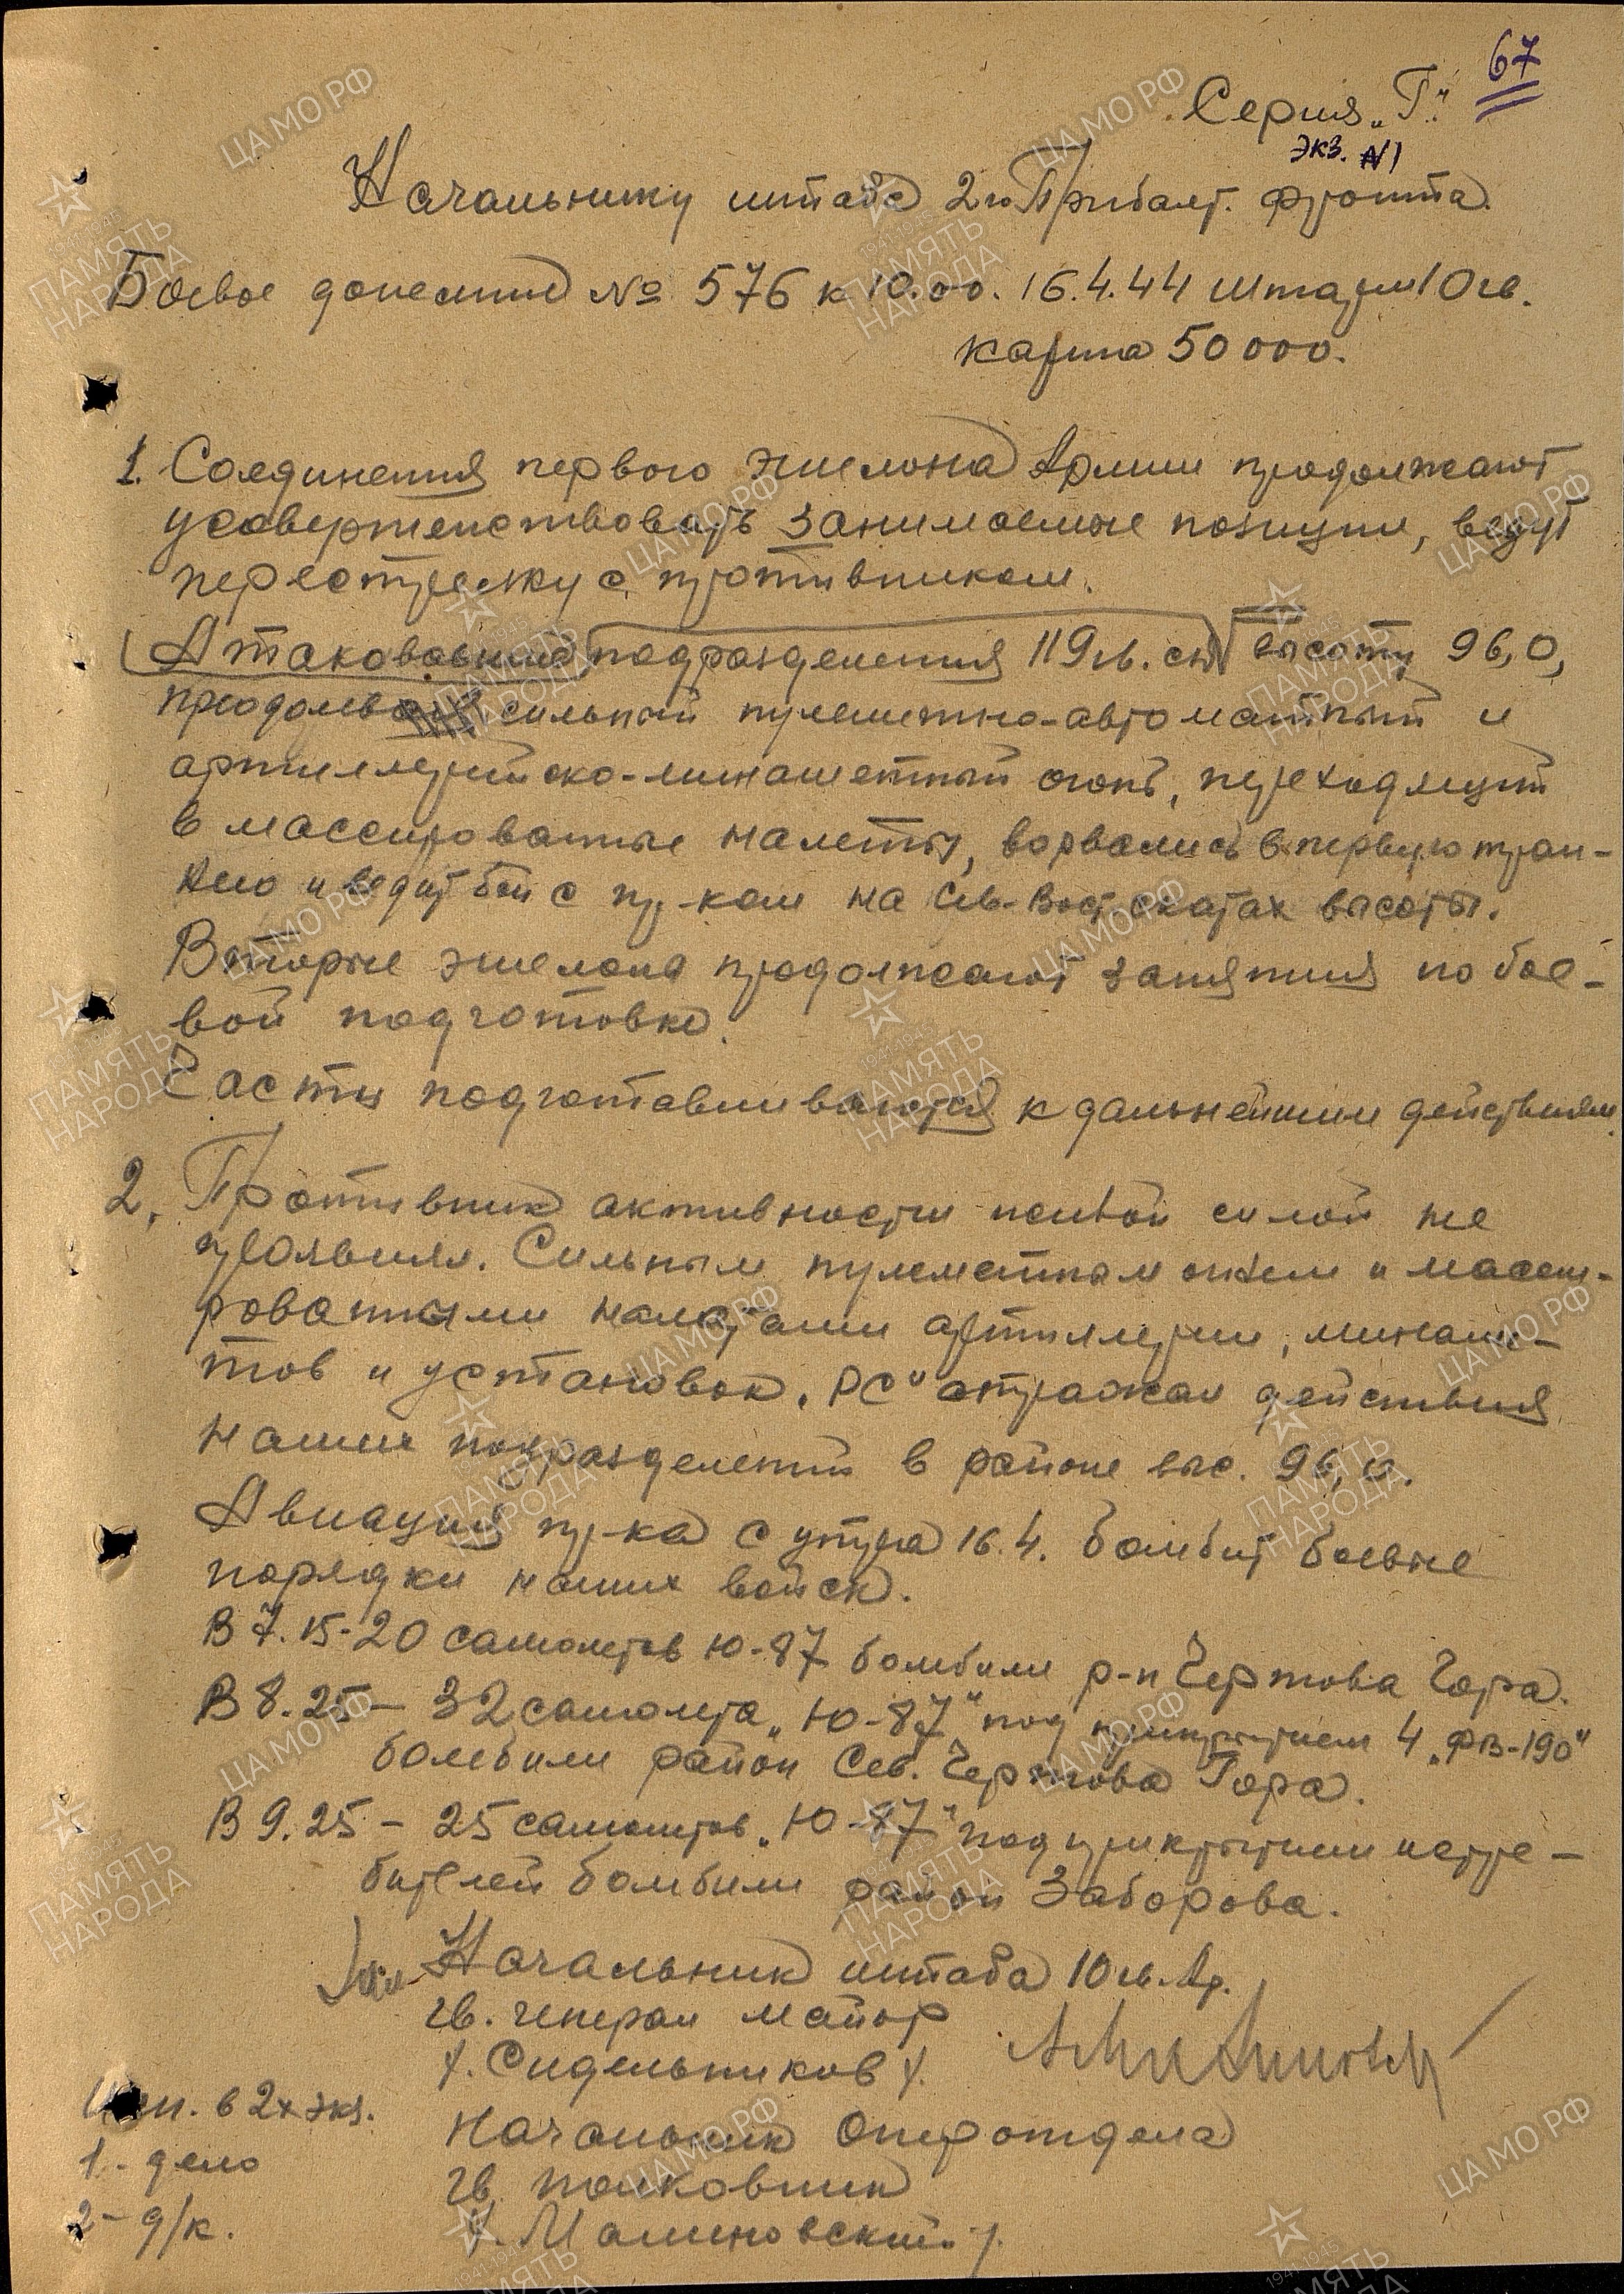 67
Серия „Г“.
экз. №1
Начальнику штаба 2го Прибалт. фронта.
Боевое донесение № 576 к 10.00. 16.4.44 Штарм 10 гв.
карта 50 000.
1. Соединения первого эшелона Армии продолжают
усовершенствовать занимаемые позиции, ведут
перестрелку с противником.
Атаковавшие подразделения 119 гв. сп высоту 96,0,
преодолевая сильный пулеметно-автоматный и
артиллерийско-минометный огонь, переходящий
в массированные налеты, ворвались в первую тран-
шею и ведут бой с пр-ком на Сев-Вост. скатах высоты.
Вторые эшелона продолжают занятия по бое-
вой подготовке.
Части подготавливаются к дальнейшим действиям.
2. Противник активности живой силой не
проявлял. Сильным пулеметным огнем и масси-
рованными налетами артиллерии, миноме-
тов и установок „РС“ отражал действия
наших подразделений в районе выс. 96,0.
Авиация пр-ка с утра 16.4. бомбит боевые
порядки наших войск.
В 7.15-20 самолетов Ю-87 бомбили р-н Чертова Гора.
В 8.25 – 32 самолета „Ю-87“ под прикрытием 4 „ФВ-190“
бомбили район Сев. Чертова Гора.
В 9.25 – 25 самолетов „Ю-87“ под прикрытием истре-
бителей бомбили район Заборова.
Начальник штаба 10 гв. Ар.
гв. генерал майор
/. Сидельников /.
Начальник Оперотдела
гв. полковник
/. Малиновский. /.
Исп. в 2х экз.
1 – дело
2 – д/к.
ЦА МО РФ
ПАМЯТЬ
НАРОДА
1941-1945